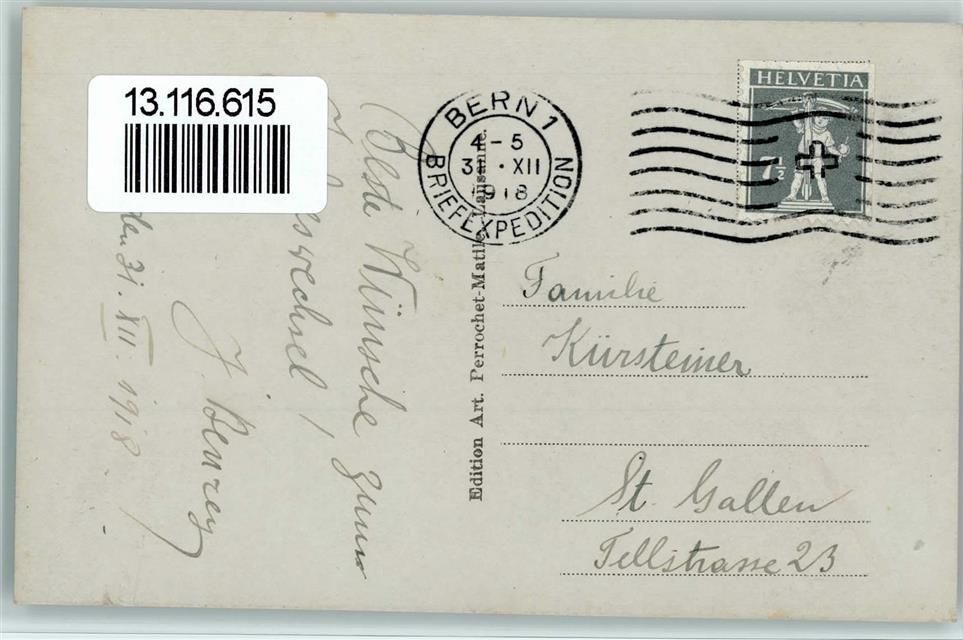 13.116.615
BERN 1
4-5
31. XII
1918
BRIEFEXPEDITION
HELVETIA
7½
Beste Wünsche zum
Jahreswechsel!
J. Benrey
den 31. XII. 1918.
Edition Art. Perrochet-Matile, Lausanne.
Familie
Kürsteiner
St. Gallen
Tellstrasse 23